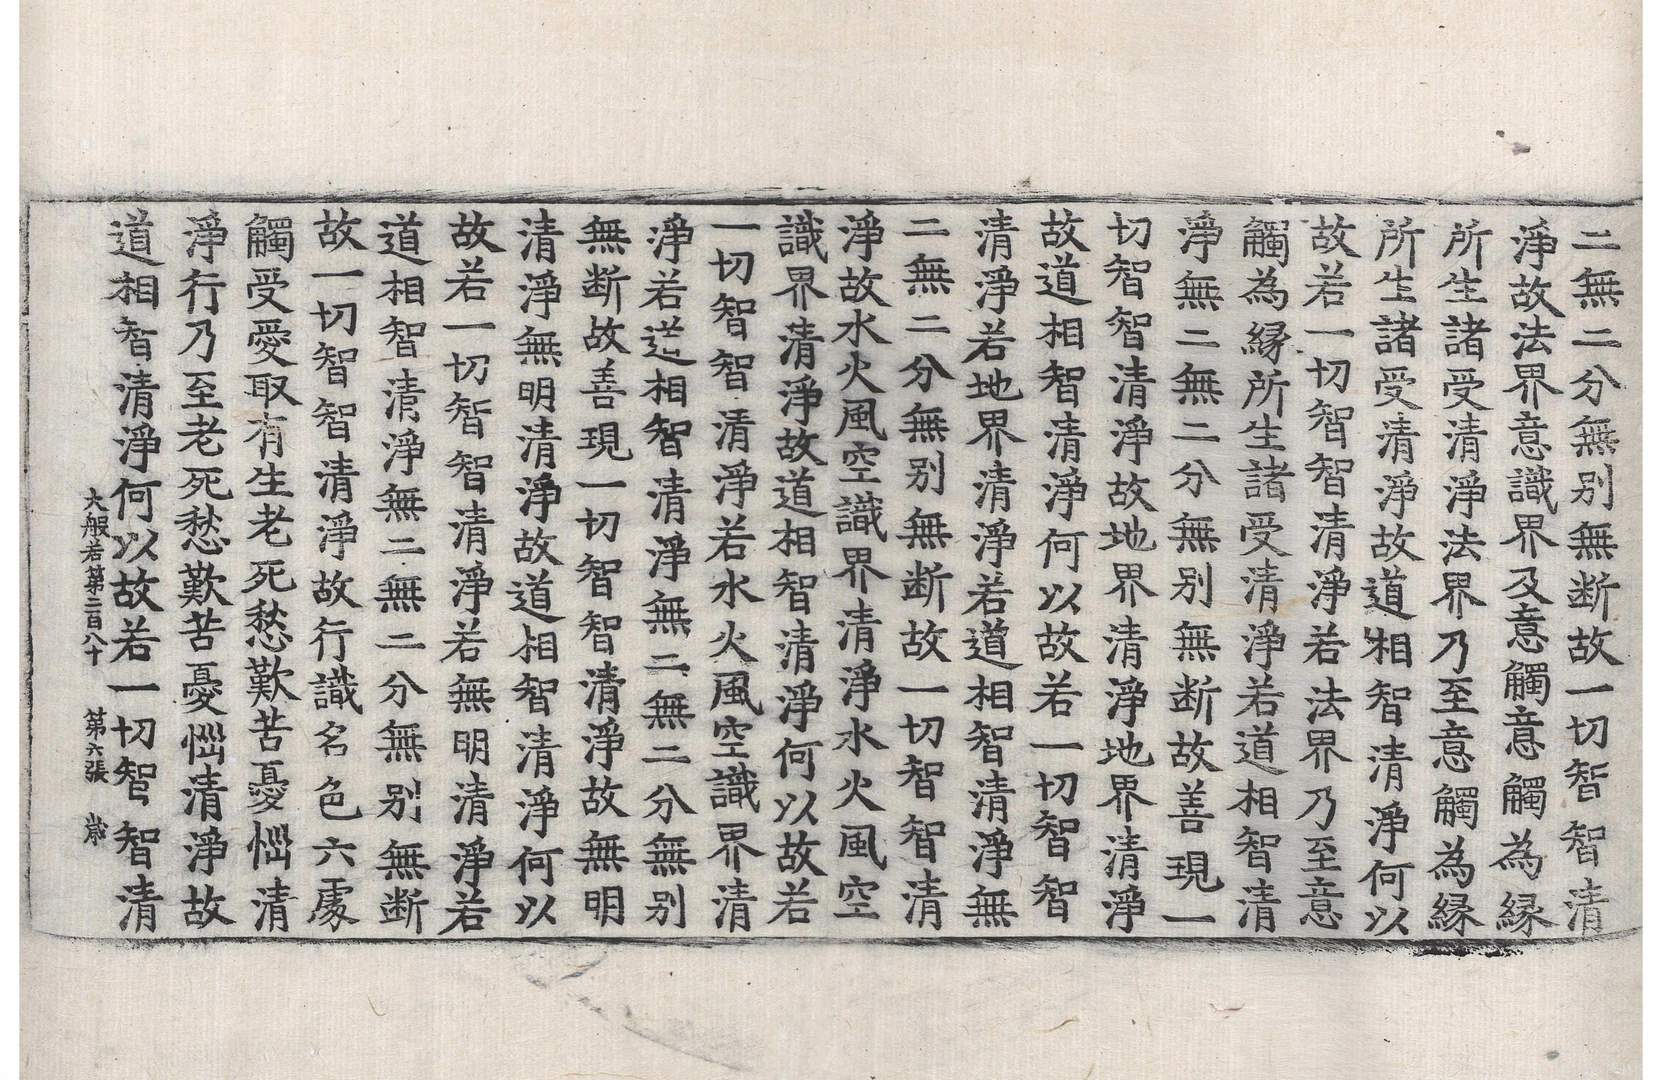 二無二分無別無断故一切智智清
淨故法界意識界及意觸意觸為縁
所生諸受清淨法界乃至意觸為縁
所生諸受清淨故道相智清淨何以
故若一切智智清淨若法界乃至意
觸為縁所生諸受清淨若道相智清
淨無二無二分無别無断故善現一
切智智清淨故地界清淨地界清淨
故道相智清淨何以故若一切智智
清淨若地界清淨若道相智清淨無
二無二分無别無断故一切智智清
淨故水火風空識界清淨水火風空
識界清淨故道相智清淨何以故若
一切智智清淨若水火風空識界清
淨若道相智清淨無二無二分無别
無断故善現一切智智清淨故無明
清淨無明清淨故道相智清淨何以
故若一切智智清淨若無明清淨若
道相智清淨無二無二分無别無断
故一切智智清淨故行識名色六處
觸受愛取有生老死愁歎苦憂惱清
淨行乃至老死愁歎苦憂惱清淨故
道相智清淨何以故若一切智智清
大般若第二百八十 第六張 歲